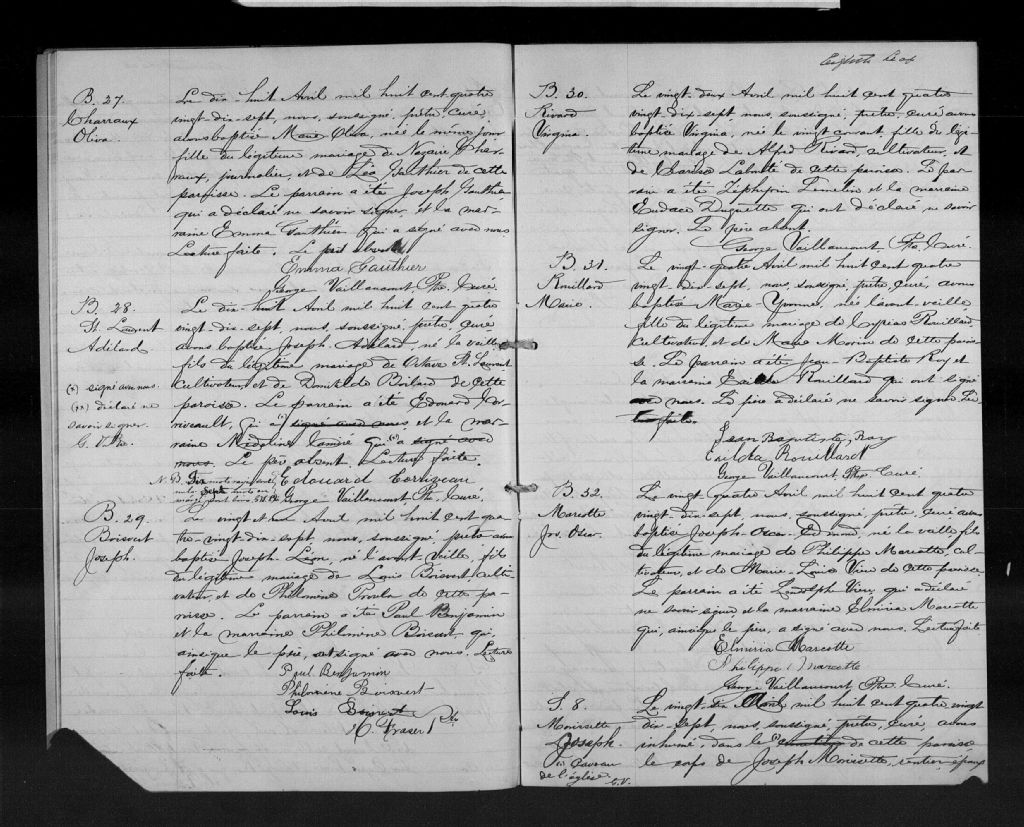 B. 27.
Charraux
Oliva
Le dix-huit Avril mil huit cent quatre
vingt-dix-sept, nous, soussigné, prêtre, curé
avons baptisé Marie Oliva, née le même jour
fille du légitime mariage de Nazaire Char-
raux, journalier, et de Léa Gauthier de cette
paroisse. Le parrain a été Joseph Gauthier
qui a déclaré ne savoir signer, et la mar-
raine Emma Gauthier qui a signé avec nous
Lecture faite. Le père absent
Emma Gauthier
George Vaillancourt Ptre. Curé.
B. 28.
St. Laurent
Adélard
(x) signé avec nous.
(xx) déclaré ne
savoir signer.
G. V. Ptre.
Le dix-huit Avril mil huit cent quatre
vingt-dix-sept, nous, soussigné, prêtre, curé
avons baptisé Joseph Adélard, né la veille
fils du légitime mariage de Octave St. Laurent
cultivateur, et de Boilard de cette
paroisse. Le parrain a été Edouard Cor-
riveault, qui a (x) signé avec nous et la mar-
raine qui (xx) a signé avec
nous. Le père absent. Lecture faite.
N. B. Dix mots
Edouard Corriveau
George Vaillancourt Ptre. Curé.
B. 29.
Boisvert
Joseph.
Le vingt et un Avril mil huit cent qua-
tre-vingt-dix-sept, nous, soussigné, prêtre avons
baptisé Joseph Léon, né l'avant veille, fils
du légitime mariage de Louis Boisvert, culti-
vateur, et de Philomène de cette pa-
roisse. Le parrain a été Paul Benjamin
et la marraine Philomène Boisvert qui,
ainsi que le père, ont signé avec nous. Lecture
faite.
Paul Benjamin
Philomène Boisvert
Louis Boisvert
H. Fraser Ptre
B. 30.
Rivard
Virginia.
Le vingt-deux Avril mil huit cent quatre
vingt-dix-sept, nous, soussigné, prêtre, curé avons
baptisé Virginia, née le vingt courant, fille du légi-
time mariage de Alfred Rivard, cultivateur, et
de de cette paroisse. Le par-
rain a été Zéphirin et la marraine
Duquette qui ont déclaré ne savoir
signer. Le père absent.
George Vaillancourt Ptre. Curé.
B. 31.
Rouillard
Marie.
Le vingt-quatre Avril mil huit cent quatre
vingt-dix-sept, nous, soussigné, prêtre, curé, avons
baptisé Marie Yvonne, née l'avant veille
fille du légitime mariage de Cyprias Rouillard,
cultivateur, et de Marie Morin de cette parois-
se. Le parrain a été Jean-Baptiste Roy et
la marraine Rouillard qui ont signé
avec nous. Le père a déclaré ne savoir signer. Lec-
ture faite.
Jean Baptiste Roy
Rouillard
George Vaillancourt Ptre Curé
B. 32.
Marcotte
Jos. Oscar.
Le vingt quatre Avril mil huit cent quatre
vingt-dix-sept, nous, soussigné, prêtre, curé avons
baptisé Joseph-Oscar-Edmond, né la veille fils
du légitime mariage de Philippe Marcotte, cul-
tivateur, et de Marie-Louise de cette paroisse
Le parrain a été qui a déclaré
ne savoir signer et la marraine Elmiria Marcotte
qui, ainsi que le père, a signé avec nous. Lecture faite
Elmiria Marcotte
Philippe Marcotte
George Vaillancourt Ptre. Curé.
S. 8.
Morissette
Joseph.
(x) caveau
de l'église
G. V.
Le vingt Avril mil huit cent quatre vingt
dix-sept, nous, soussigné prêtre, curé, avons
inhumé, dans le (x) cimetière de cette paroisse
le corps de Joseph Morissette, rentier, époux